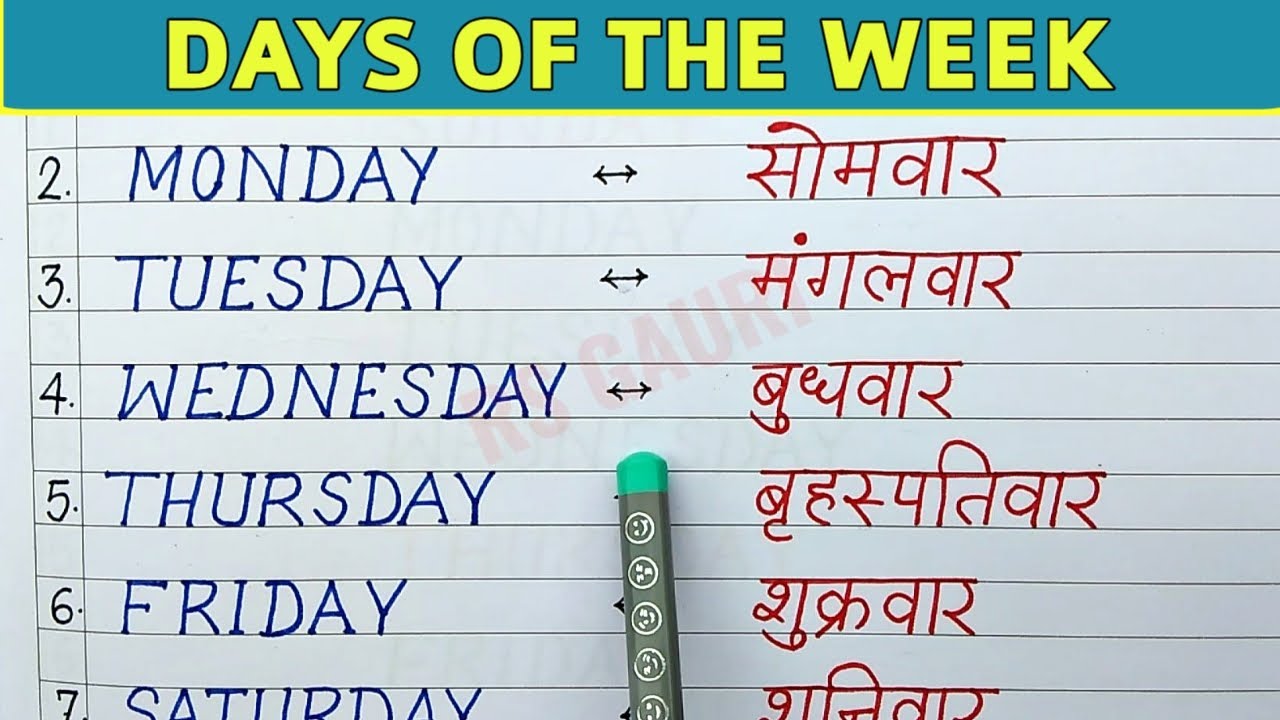 DAYS OF THE WEEK
2. MONDAY ↔ सोमवार
3. TUESDAY ↔ मंगलवार
RS GAURI
4. WEDNESDAY ↔ बुधवार
5. THURSDAY बृहस्पतिवार
6. FRIDAY शुक्रवार
7. SATURDAY शनिवार